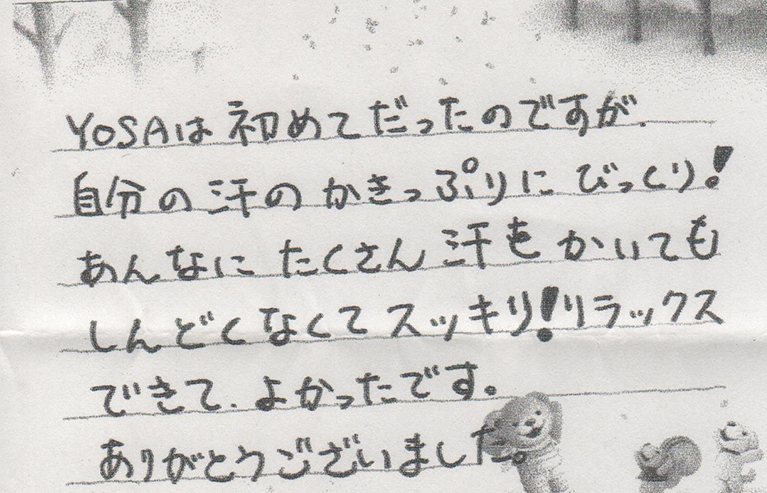 YOSAは初めてだったのですが、
自分の汗のかきっぷりにびっくり!
あんなにたくさん汗をかいても
しんどくなくてスッキリ!リラックス
できて、よかったです。
ありがとうございました。